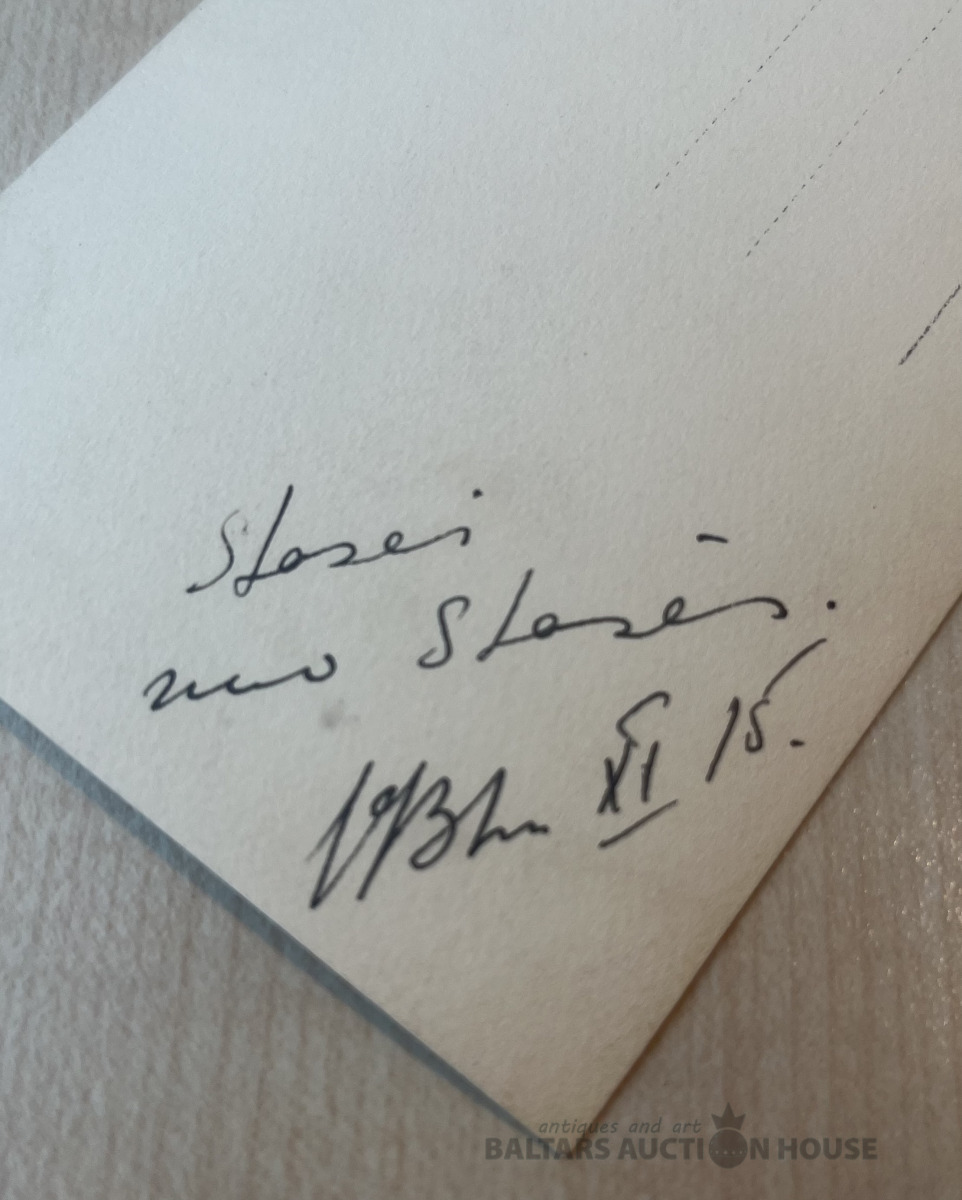 Stasei
nuo Stasės.
XI 15.
antiques and art
BALTARS AUCTION HOUSE